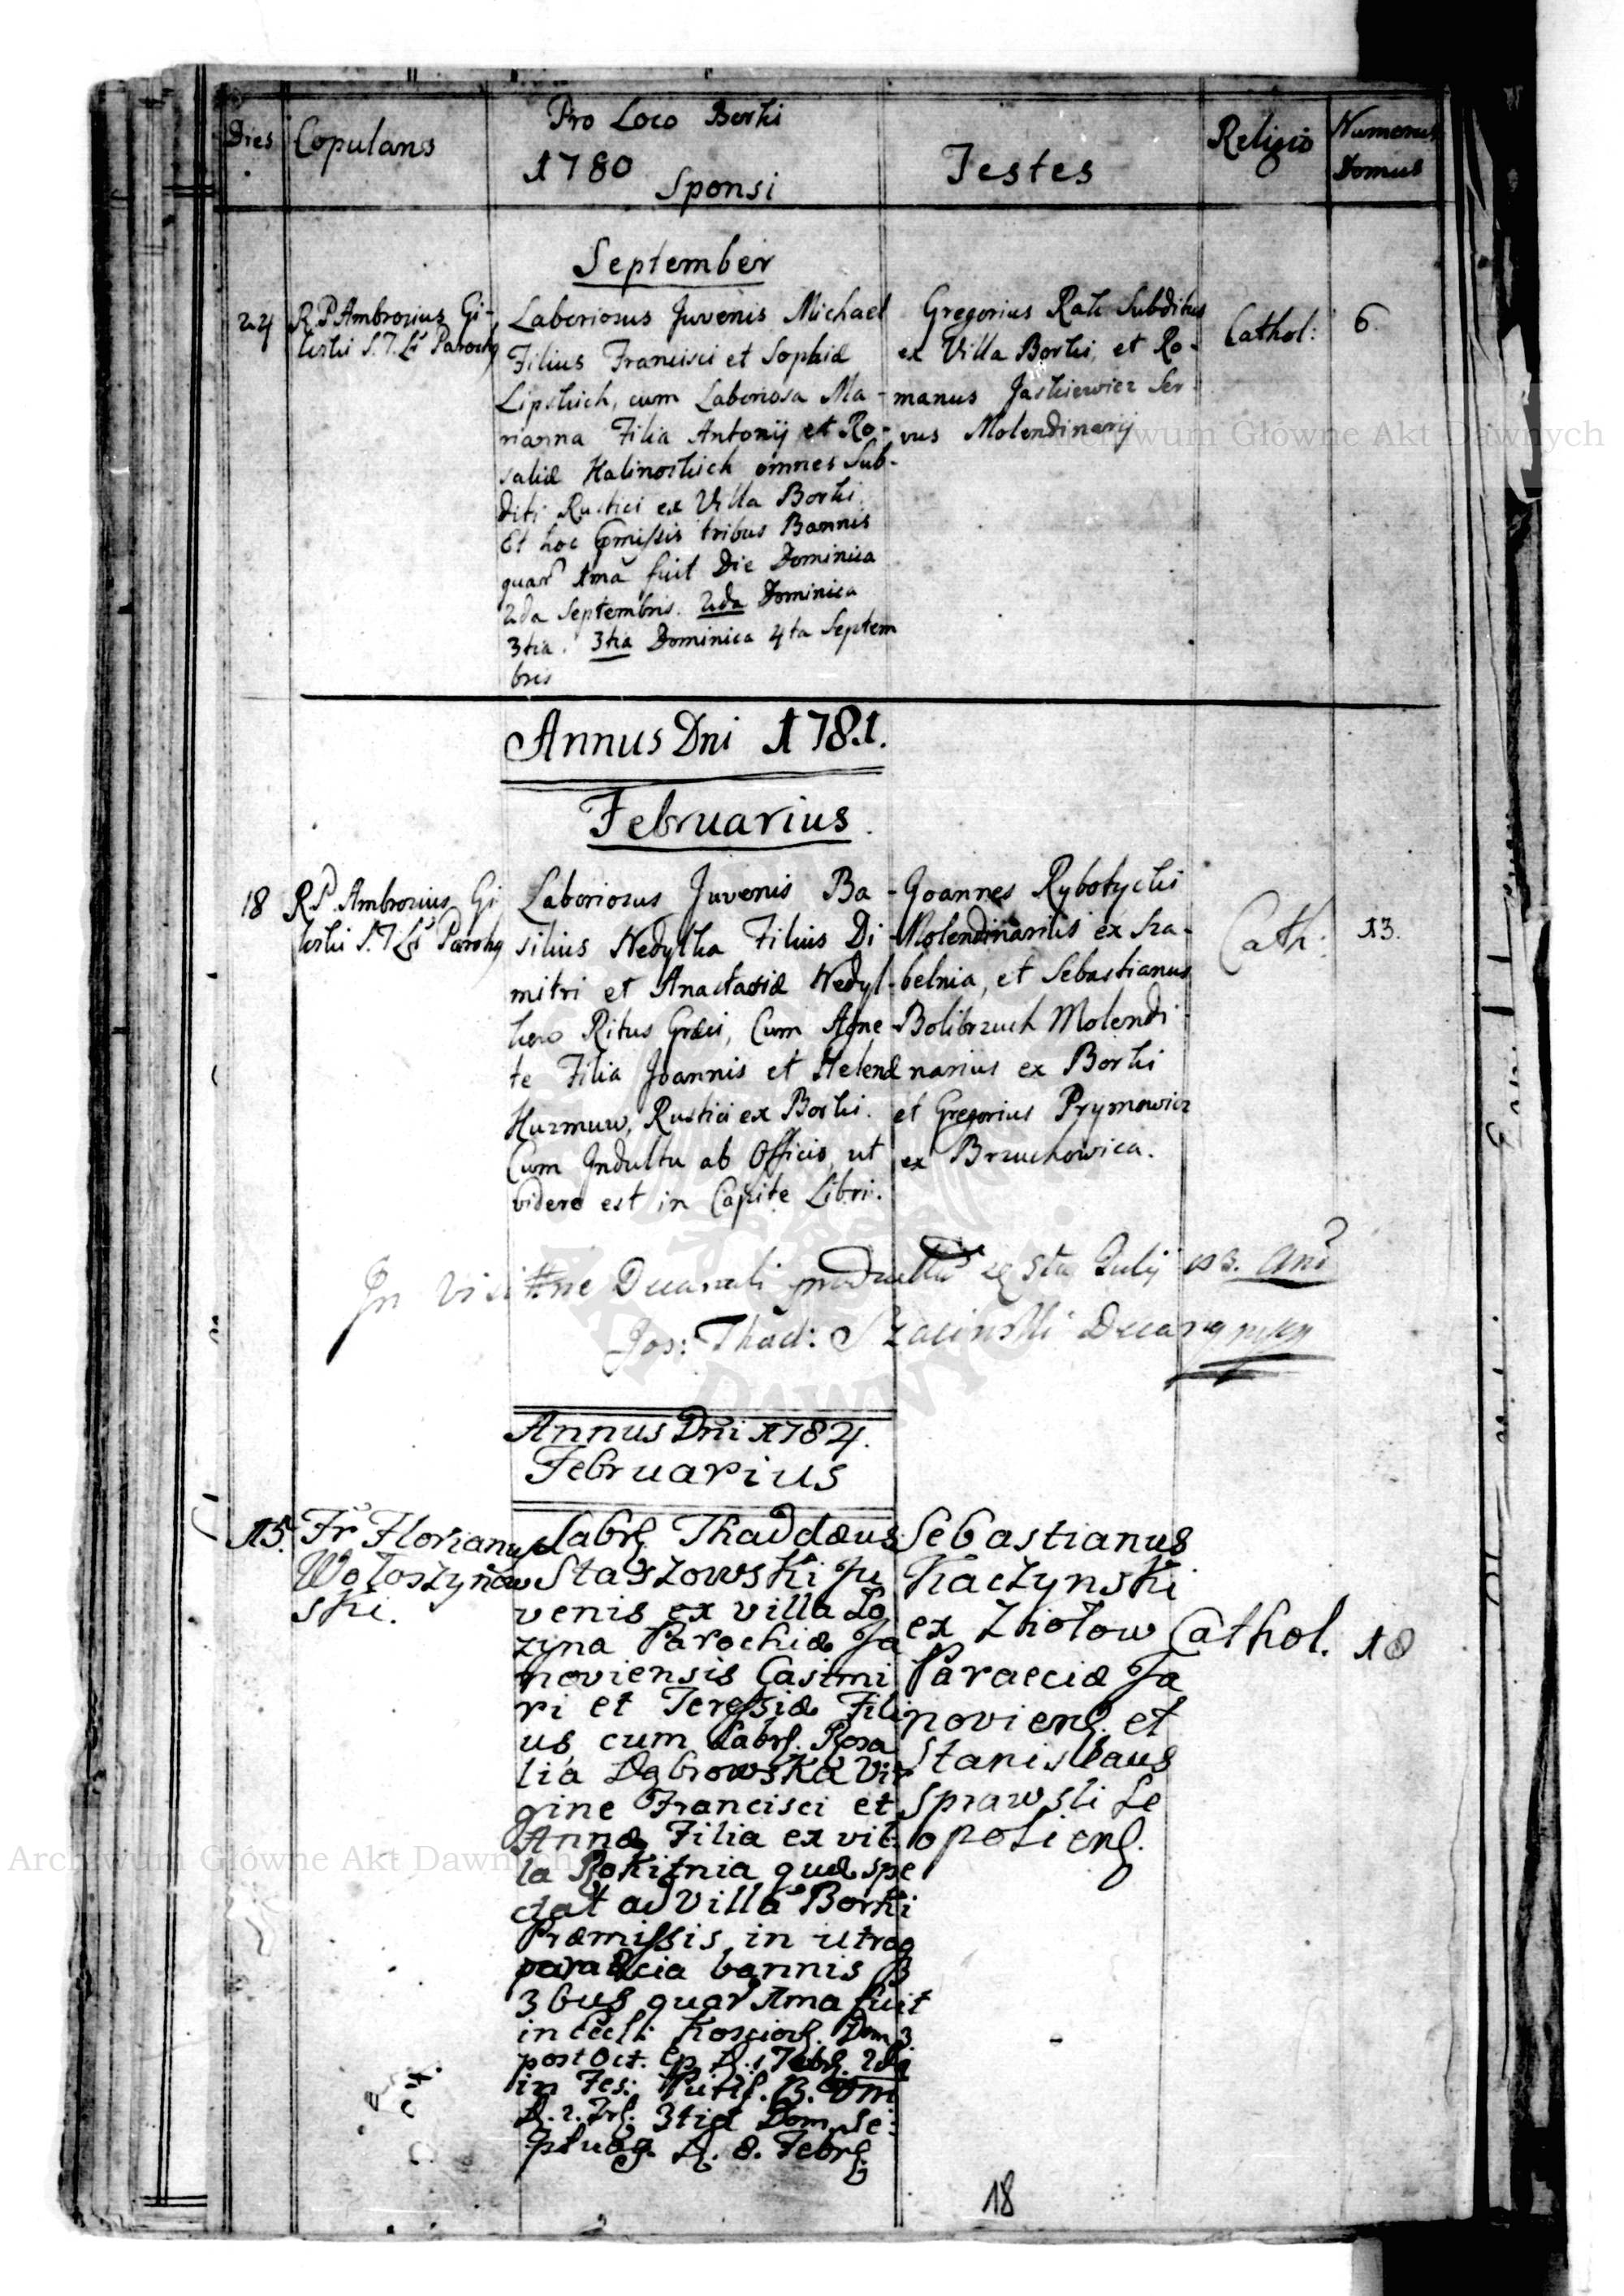 Dies
Copulans
Pro Loco Borki
1780
Sponsi
Testes
Religio
Numerus
Domus
September
24
R. P. Ambrosius Gi-
lerski S. T. Ls Parochg
Laboriosus Juvenis Michael
Filius Francisci et Sophiæ
Lipskich, cum Laboriosa Ma-
rianna Filia Antonij et Ro-
saliæ Kalinoskich omnes Sub-
diti Rustici ex Villa Borki.
Et hoc Pmissis tribus Bannis
quar 1ma fuit Die Dominica
2da Septembris. 2da Dominica
3tia. 3tia Dominica 4ta Septem
bris
Gregorius Rak Subditus
ex Villa Borki, et Ro-
manus Jaskiewicz Ser-
vus Molendinarij
Cathol:
6.
Annus Dni 1781.
Februarius.
18
R. P. Ambrosius Gi
lerski S. T. Ls Parochg
Laboriosus Juvenis Ba-
silius Nedylka Filius Di-
mitri et Anastasiæ Nedyl-
kow Ritus Græci, Cum Agne-
te Filia Joannis et Helenæ
Huzmuw, Rustici ex Borki.
Cum Indultu ab Officio, ut
videre est in Capite Libri.
Joannes Rybotycki
Molendinarius ex Sza-
belnia, et Sebastianus
Bolibrzuch Molendi-
narius ex Borki
et Gregorius Prymowicz
ex Brzuchowica.
Cath:
13.
In Visitne Decanali productus e 5ta Julij 83. Ano
Jos: Thad: Szacinski Decang
Annus Dni 1784.
Februarius
15.
Fr Florianus
Wołoszynow
ski.
Labrs Thaddæus
Staszowski Ju
venis ex villa Lo
zyna Parochiæ Ja
noviensis Casimi
ri et Teressiæ Fili
us cum Labrs. Rosa
lia Dąbrowska Vir
gine Francisci et
Annæ Filia ex vil
la Rokitnia quæ spe
ctat ad Villa Borki
Præmissis in utraq
paraecia bannis
3bus quar 1ma fuit
in Eccli: Kosciors. Dom 3
post Oct. Ep D. 1 Febrs. 2da
in Fes: Purif. B. Vm
D. 2. Frs. 3tia Dom. Se:
ptuag. D. 8. Febrs
Sebastianus
Kaczynski
ex Zniołow
Paraeciæ Ja
noviens. et
Stanislaus
Sprawski Le
opoliens.
Cathol.
18
18
Archiwum Główne Akt Dawnych
Archiwum Główne Akt Dawnych
AKT DAWNYCH